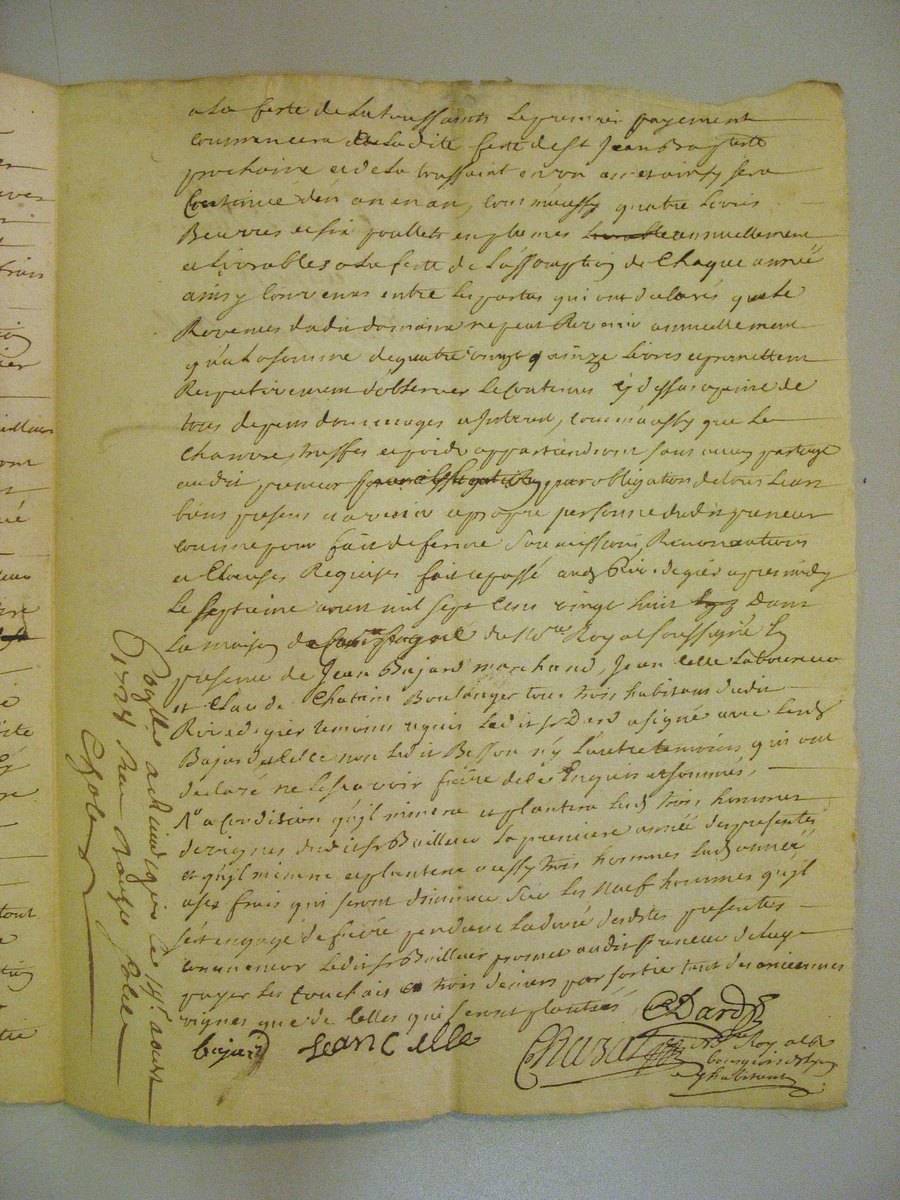 a La feste de La toussaints Le premier payement
commancera de La dite feste de st Jean Baptiste
prochaine et de La toussaint en un an et ainsy sera
Continué d'en an en an, comme aussy quatre Livres
Beurres et six poullets en plumes annuellement
et Livrables a La feste de L'assomption de Chaque année
ainsy Convenus entre Les parties qui ont declarés que Le
Revenus dudit domaine ne peut Revenir annuellement
qu'a La somme de quatre vingt quinze Livres et promettent
Respectivement d'observer Le Contenus cy dessus a peine de
tous depens dommages et interest, comme aussy que Le
Chanvre, truffes et poids appartiendront sans aucun partage
audit preneur par obligation de tous Leurs
biens presens et a venir et propre personne dudit preneur
comme pour fait de ferme Soumissions, Renonciations
et Clauses Requises fait et passé aud Rive de gier apres midy
Le septieme avril mil sept Cens vingt huit Dans
La maison du No.re Royal soussigné En
presence de Jean Bajard marchand, Jean Celle Laboureur
et Claude Chatain Boulanger tous trois habitans dudit
Rive de gier temoins requis Ledit Sr Dard a signé avec Lesd
Bajard et Celle non Ledit Besson n'y L'autre temoins qui ont
declaré ne Le scavoir faire de ce Enquis et sommés,
a Condition qu'il minera et plantera Lesd trois hommes
de vignes dudit Sr Bailleur La premiere année des presentes
et qu'il minera et plantera aussy trois hommes Lad année
a ses frais qui seront diminué sur Les neuf hommes qu'il
s'est engagé de faire pendant La durée desdites presentes
Ledit Sr Bailleur promet audit preneur de Luy
payer Les Couchais a trois deniers par sortie tant des anciennes
vignes que de Celles qui seront plantées
Dard
bajard Jean Celle Chazal
No.re Royal
bourgeois
habitant
Con.llé a Rive de gier Le 14e aoust
1728 Reçu douze sols
Choler